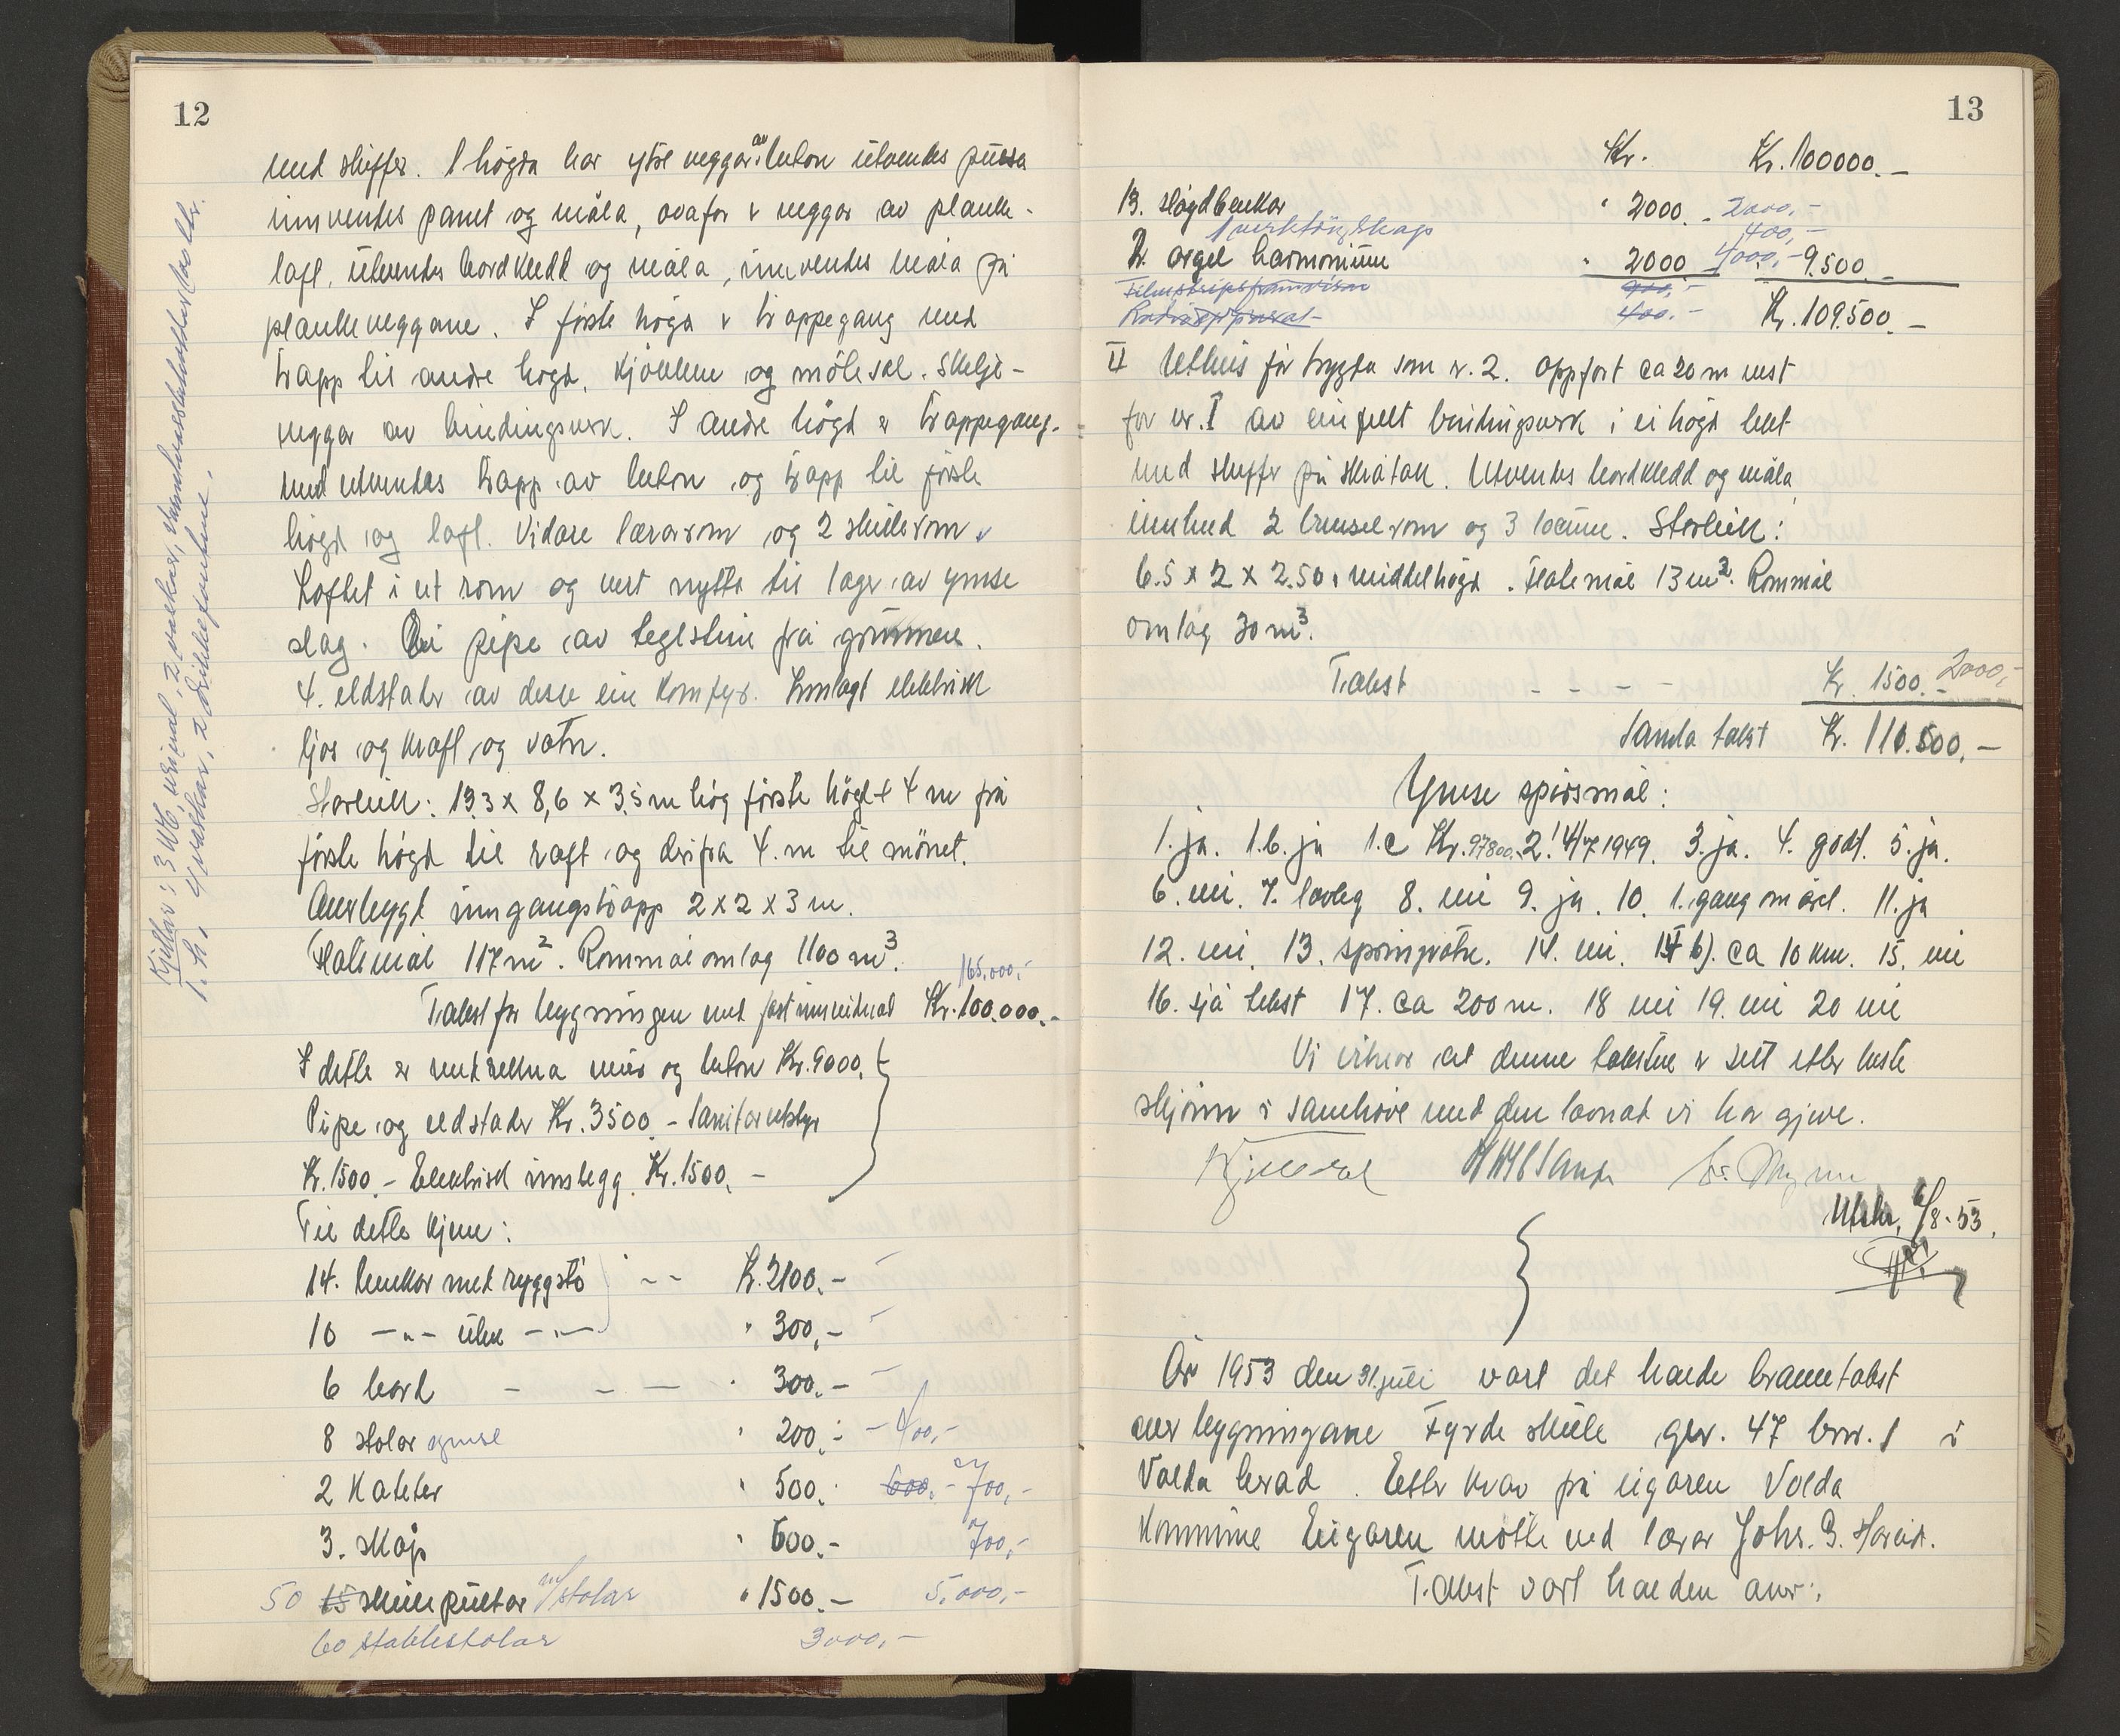 12
med skiffer. I högda har ytre veggar av beton utvendes pussa
innvendes panel og måla, ovafor v veggar av planke-
laft, utvendes bordkledd og måla, innvendes måla på
plankeveggane. I første högd v trappegang med
trapp til andre högd, kjökken og mötesal. Skilje-
veggar av bindingsverk. I andre högd v trappegang
med utvendes trapp av beton og trapp til første
högd og loft. Vidare lærarrom og 2 skulerom v
Loftet i eit rom og vert nytta til lager av ymse
slag. Ei pipe av teglstein frå grunnen.
4. eldstader av desse ein komfyr. Innlagt elektrisk
ljos og kraft og vatn.
Storleik: 13,3 x 8,6 x 3,5 m høg første högd + 4 m frå
første högd til raft og derifra 4. m til mönet.
Overbygd inngangstrapp 2 x 2 x 3 m.
Flatemål 117 m². Rommål omlag 1100 m³.
165,000,-
Takst for bygningen med fast innreidnad Kr. 100.000.-
I dette er medrekna mur og beton Kr. 9000.
Pipe og eldstader Kr. 3500.- Sanitærutstyr
Kr. 1500.- Elektrisk innlegg Kr. 1500.-
Til dette kjem:
14. benkar med ryggstö - - Kr. 2100.-
10 -"- utan -"- " 300,-
6 bord - - - " 300.-
8 stolar ymse " 200.- - 400,-
2 Kateter " 500. 600,- 700,-
3. skåp " 600.- 700,-
50 15 skulepultar m/stolar " 1500.- 5,000,-
60 stablestolar 3000,-
Kjellar: 3 WC, urinal, 2 vaskar,
1. h. 4 vaskar, 2 drikkefontene.
13
Kr. Kr. 100000.-
13. slöydbenkar " 2000.- 2000,-
1 verktöyskap 400,-
2. orgel harmonium " 2000 4000,- 9.500.-
Filmstripsframvisar 900,-
Radioapparat 400.- Kr. 109.500.-
II Uthus for brygda som v. 2. Oppfört ca 20 m vest
for nr. I av einfelt bindingsverk i ei högd tekt
med skiffer på skråtak. Utvendes bordkledd og måla
innhed 2 brensel rom og 3 locum. Storleik:
6.5 x 2 x 2.50 i middelhögd. Flatemål 13 m². Rommål
omlag 30 m³.
Takst - - - - Kr. 1500.- 2000,-
Samla takst Kr. 110.500,-
Ymse spörsmål:
1. ja. 1.b. ja 1.c Kr. 97800. 2. 4/7 1949. 3. ja. 4. godt. 5. ja.
6. nei. 7. lovleg 8. nei 9. ja. 10. 1. gang om året. 11. ja
12. nei. 13. springvatn. 14. nei. 14 b). ca 10 km. 15. nei
16. sjå tekst 17. ca 200 m. 18 nei 19. nei 20 nei
Vi vitnar at denne taksten v sett etter beste
skjönn i samhöve med den lovnad vi har gjeve.
Utskr. 6/8-53.
År 1953 den 31. juli vart det halde branntakst
over bygningane Fyrde skule gnr. 47 bnr. 1 i
Volda herad. Etter krav på eigaren Volda
Kommune Eigaren mötte ved lærar Johs. B. Hareid.
Takst vart halden over: